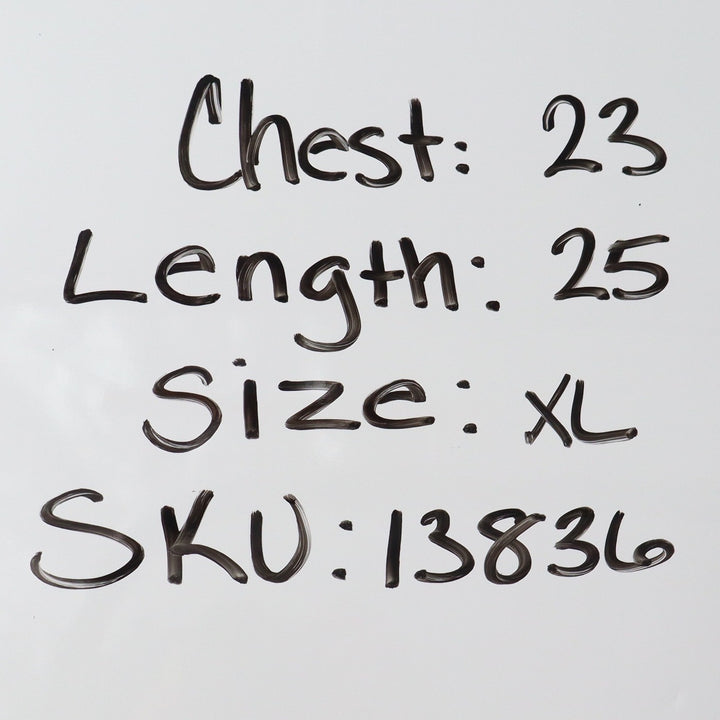 Chest: 23
Length: 25
Size: XL
SKU: 13836